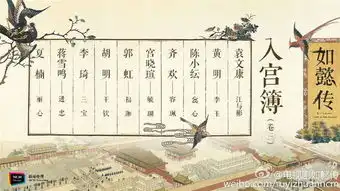 如懿传
入宫簿
(卷二)
袁文康——江与彬
黄明——李玉
陈小纭——惢心
齐欢——容珮
宫晓瑄——毓瑚
郭虹——福珈
胡明——王钦
李琦——三宝
蒋雪鸣——进忠
夏楠——丽心
@电视剧如懿传
weibo.com/ruyizhuancn